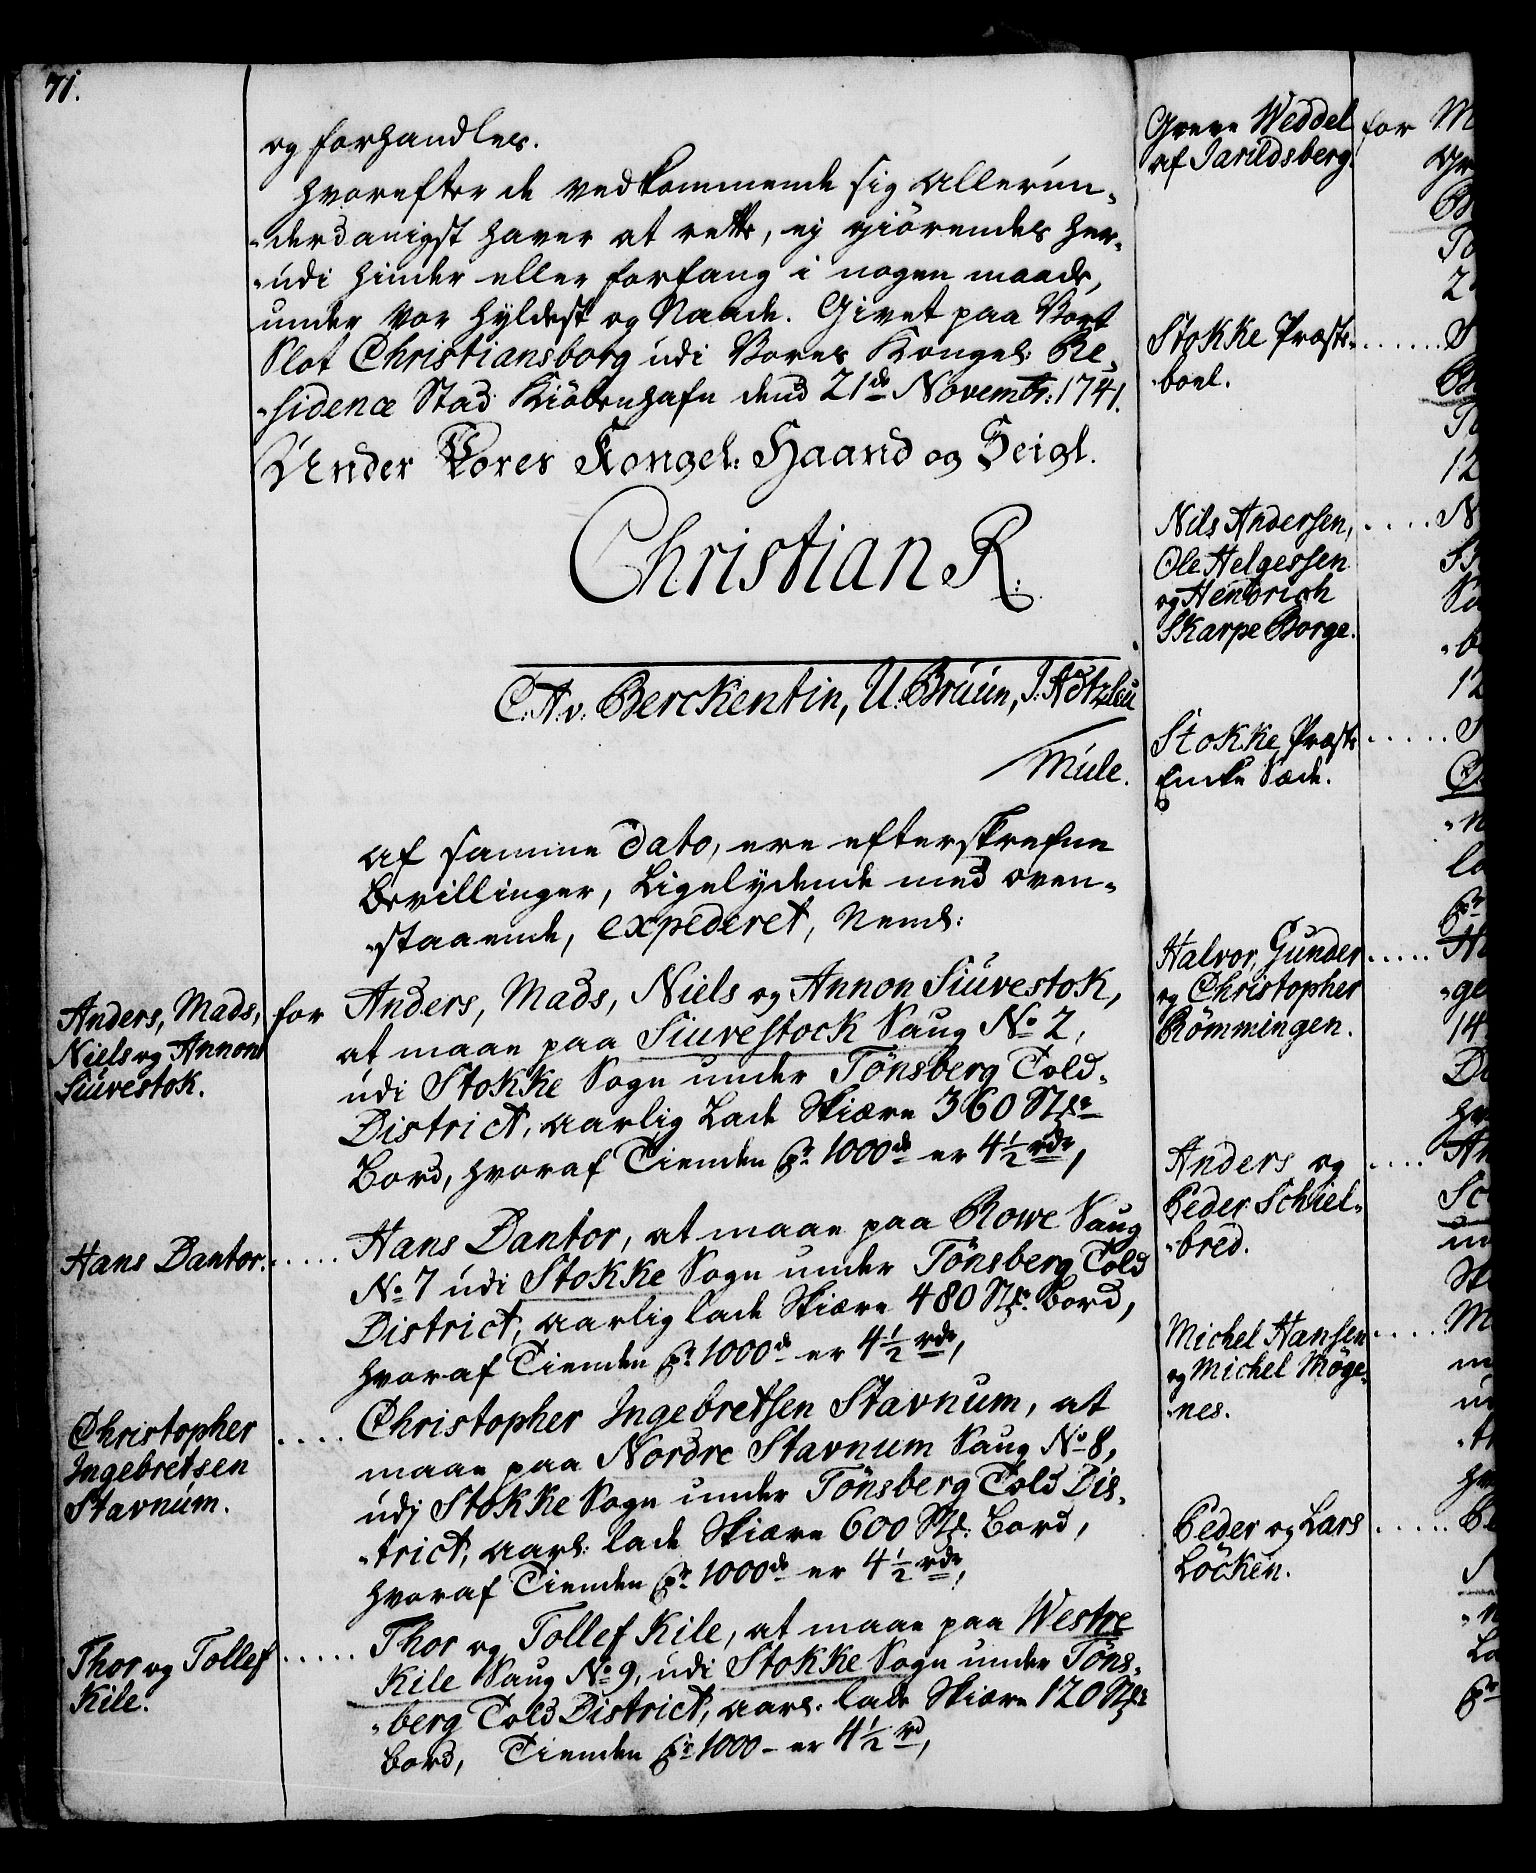 71.
og forhandles.
Hvorefter de vedkommende sig allerun„
„derdanigst haver at rette, ej giörendes her„
„udi hinder eller forfang i nogen maade,
under Vor Hyldest og Naade. Givet paa Vort
Slot Christiansborg udi Vores Kongel: Re„
„sidence Stad Kiöbenhafn dend 21de Novembr: 1741.
Under Vores Kongel: Haand og Seigl.
Christian R.
C. A. v. Berckentin, U. Bruun, J.
Mule.
Af samme Dato, ere efterskrefne
Bevillinger, Ligelydende med oven„
„staaende, expederet, Neml:
Anders, Mads,
Niels og Annon
Siuvestok.
for Anders, Mads, Niels og Annon Siuvestok,
at maae paa Siuvestock Saug No 2,
udi Stokke Sogn under Tönsberg Told„
District, aarlig Lade Skiære 360 Stk:
Bord, hvoraf Tienden pr 1000de er 4½ rdr,
Hans Dantor. .....
Hans Dantor, at maae paa Rowe Saug
No 7 udi Stokke Sogn under Tönsberg Told
District, aarlig lade Skiære 480 Stk: Bord,
hvoraf Tienden pr 1000de er 4½ rdr,
Christopher ....
Ingebretsen
Stavnum.
Christopher Ingebretsen Stavnum, at
maae paa Nordre Stavnum Saug No 8,
udj Stokke Sogn under Tönsberg Told Dis„
„trict, aarl: lade Skiære 600 Stk: Bord,
hvoraf Tienden pr 1000de er 4½ rdr,
Thor og Tollef .....
Kile.
Thor og Tollef Kile, at maae paa Westre
Kile Saug No 9, udi Stokke Sogn under Töns„
„berg Told District, aarl: lade Skiære 120 Stk:
Bord, Tienden pr 1000 – er 4½ rd,
Greve Weddel for
af Jarildsberg.
Stokke Præste„ ......
„boel.
Nils Andersen, ....
Ole Helgessen
og Hendrich
Skarpe Borge.
Stokke Præste .....
Enke Sæde.
Halvor, Gunder .....
og Christopher
Römmingen.
Anders og ....
Peder Schiel„
„bred.
Michel Hansen ....
og Michel Möge„
„nes.
Peder og Lars .....
Löcken.